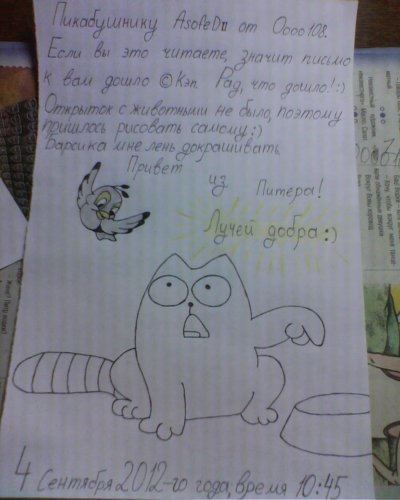 Пикабушнику AsofeD от Oooo108.
Если вы это читаете, значит письмо
к вам дошло ©Кэп. Рад, что дошло!:)
Открыток с животными не было, поэтому
пришлось рисовать самому;)
Барсика мне лень докрашивать
Привет из Питера!
Лучей добра:)
4 Сентября 2012-го года, время 10:45